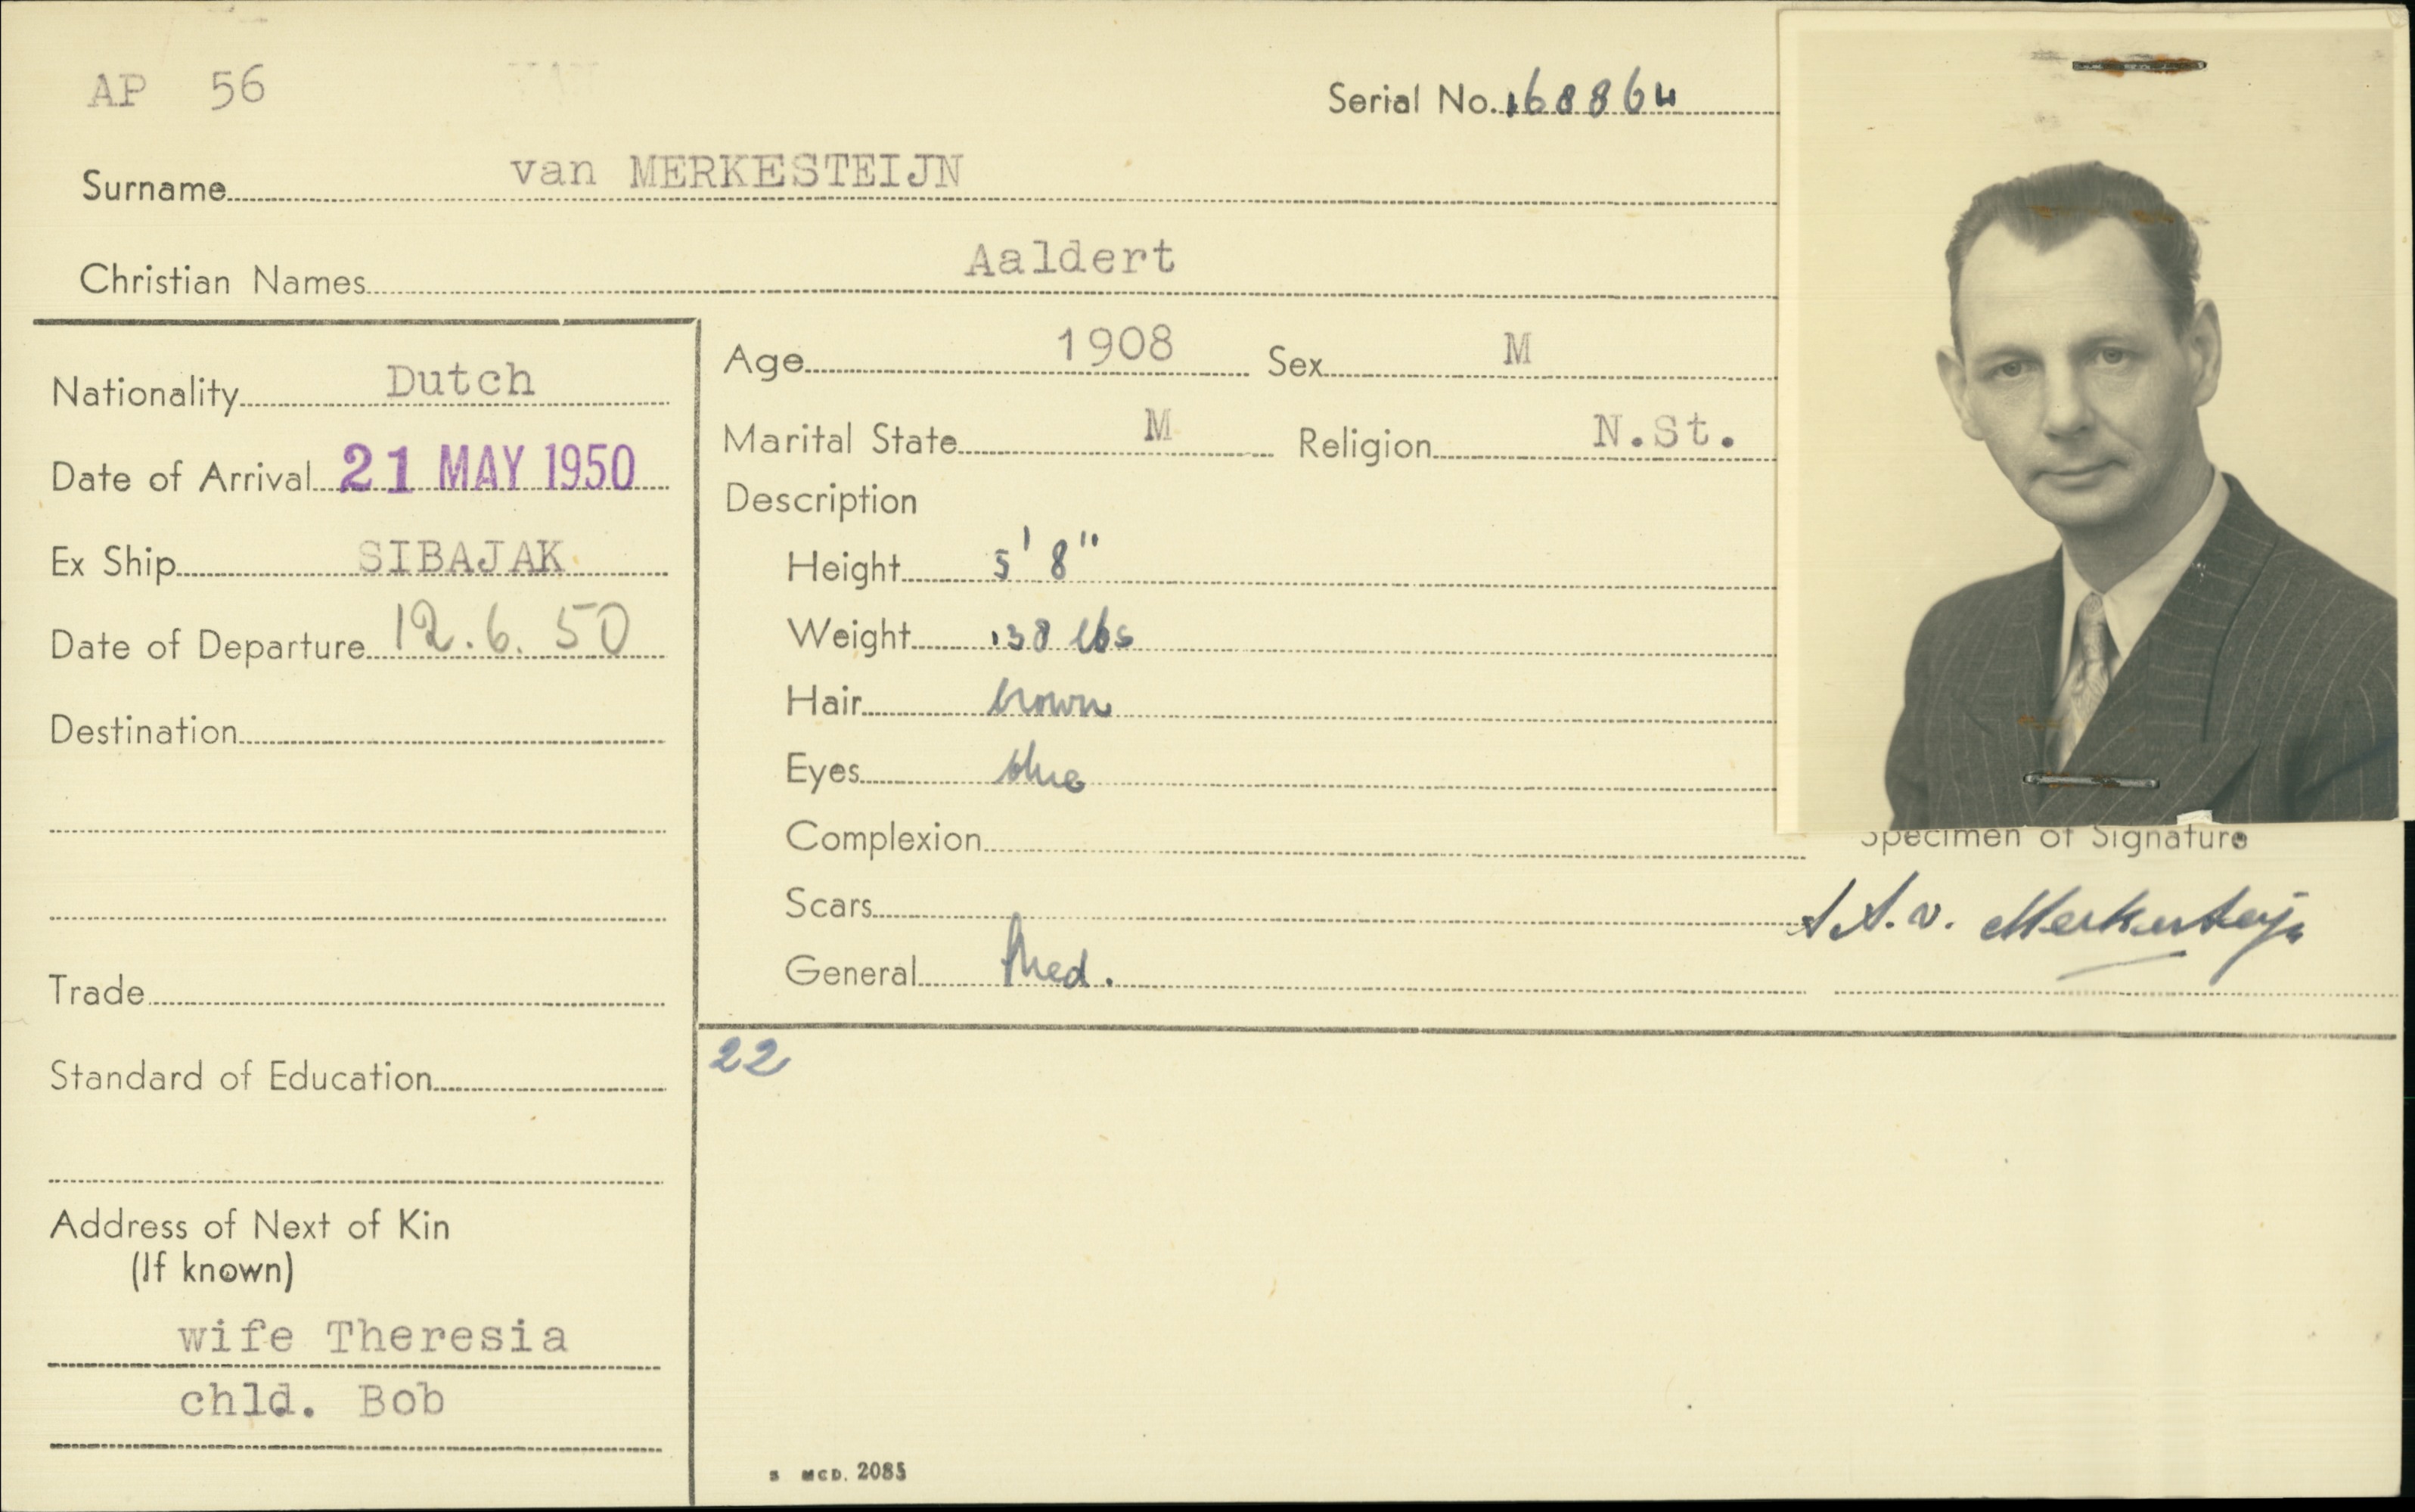 AP 56
Serial No. 168864
Surname van MERKESTEIJN
Christian Names Aaldert
Nationality Dutch
Date of Arrival 21 MAY 1950
Ex Ship SIBAJAK
Date of Departure 12.6.50
Destination
Trade
Standard of Education
Address of Next of Kin
(If known)
wife Theresia
chld. Bob
Age 1908 Sex M
Marital State M Religion N.St.
Description
Height 5' 8"
Weight 138 lbs
Hair brown
Eyes blue
Complexion
Scars
General Med.
Specimen of Signature
A.A.v. Merkesteijn
22
MCD. 2085